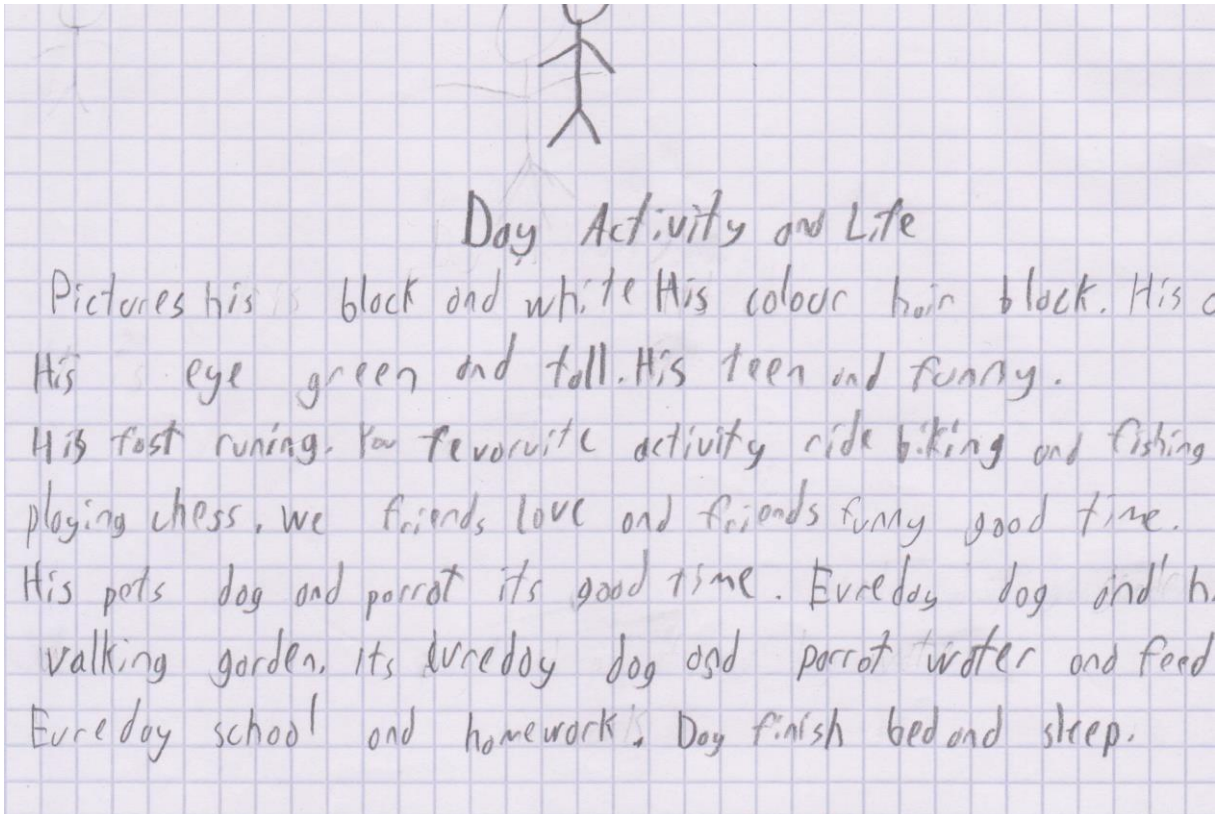 Day Activity and Life
Pictures his black and white His colour hair black. His
His eye green and tall. His teen and funny.
His fast runing. You fevoruite activity ride biking and fishing
playing chess. We friends love and friends funny good time.
His pets dog and parrot its good time. Evreday dog and
valking garden. its evreday dog and parrot water and feed
Evreday school and homework. Day finish bed and sleep.